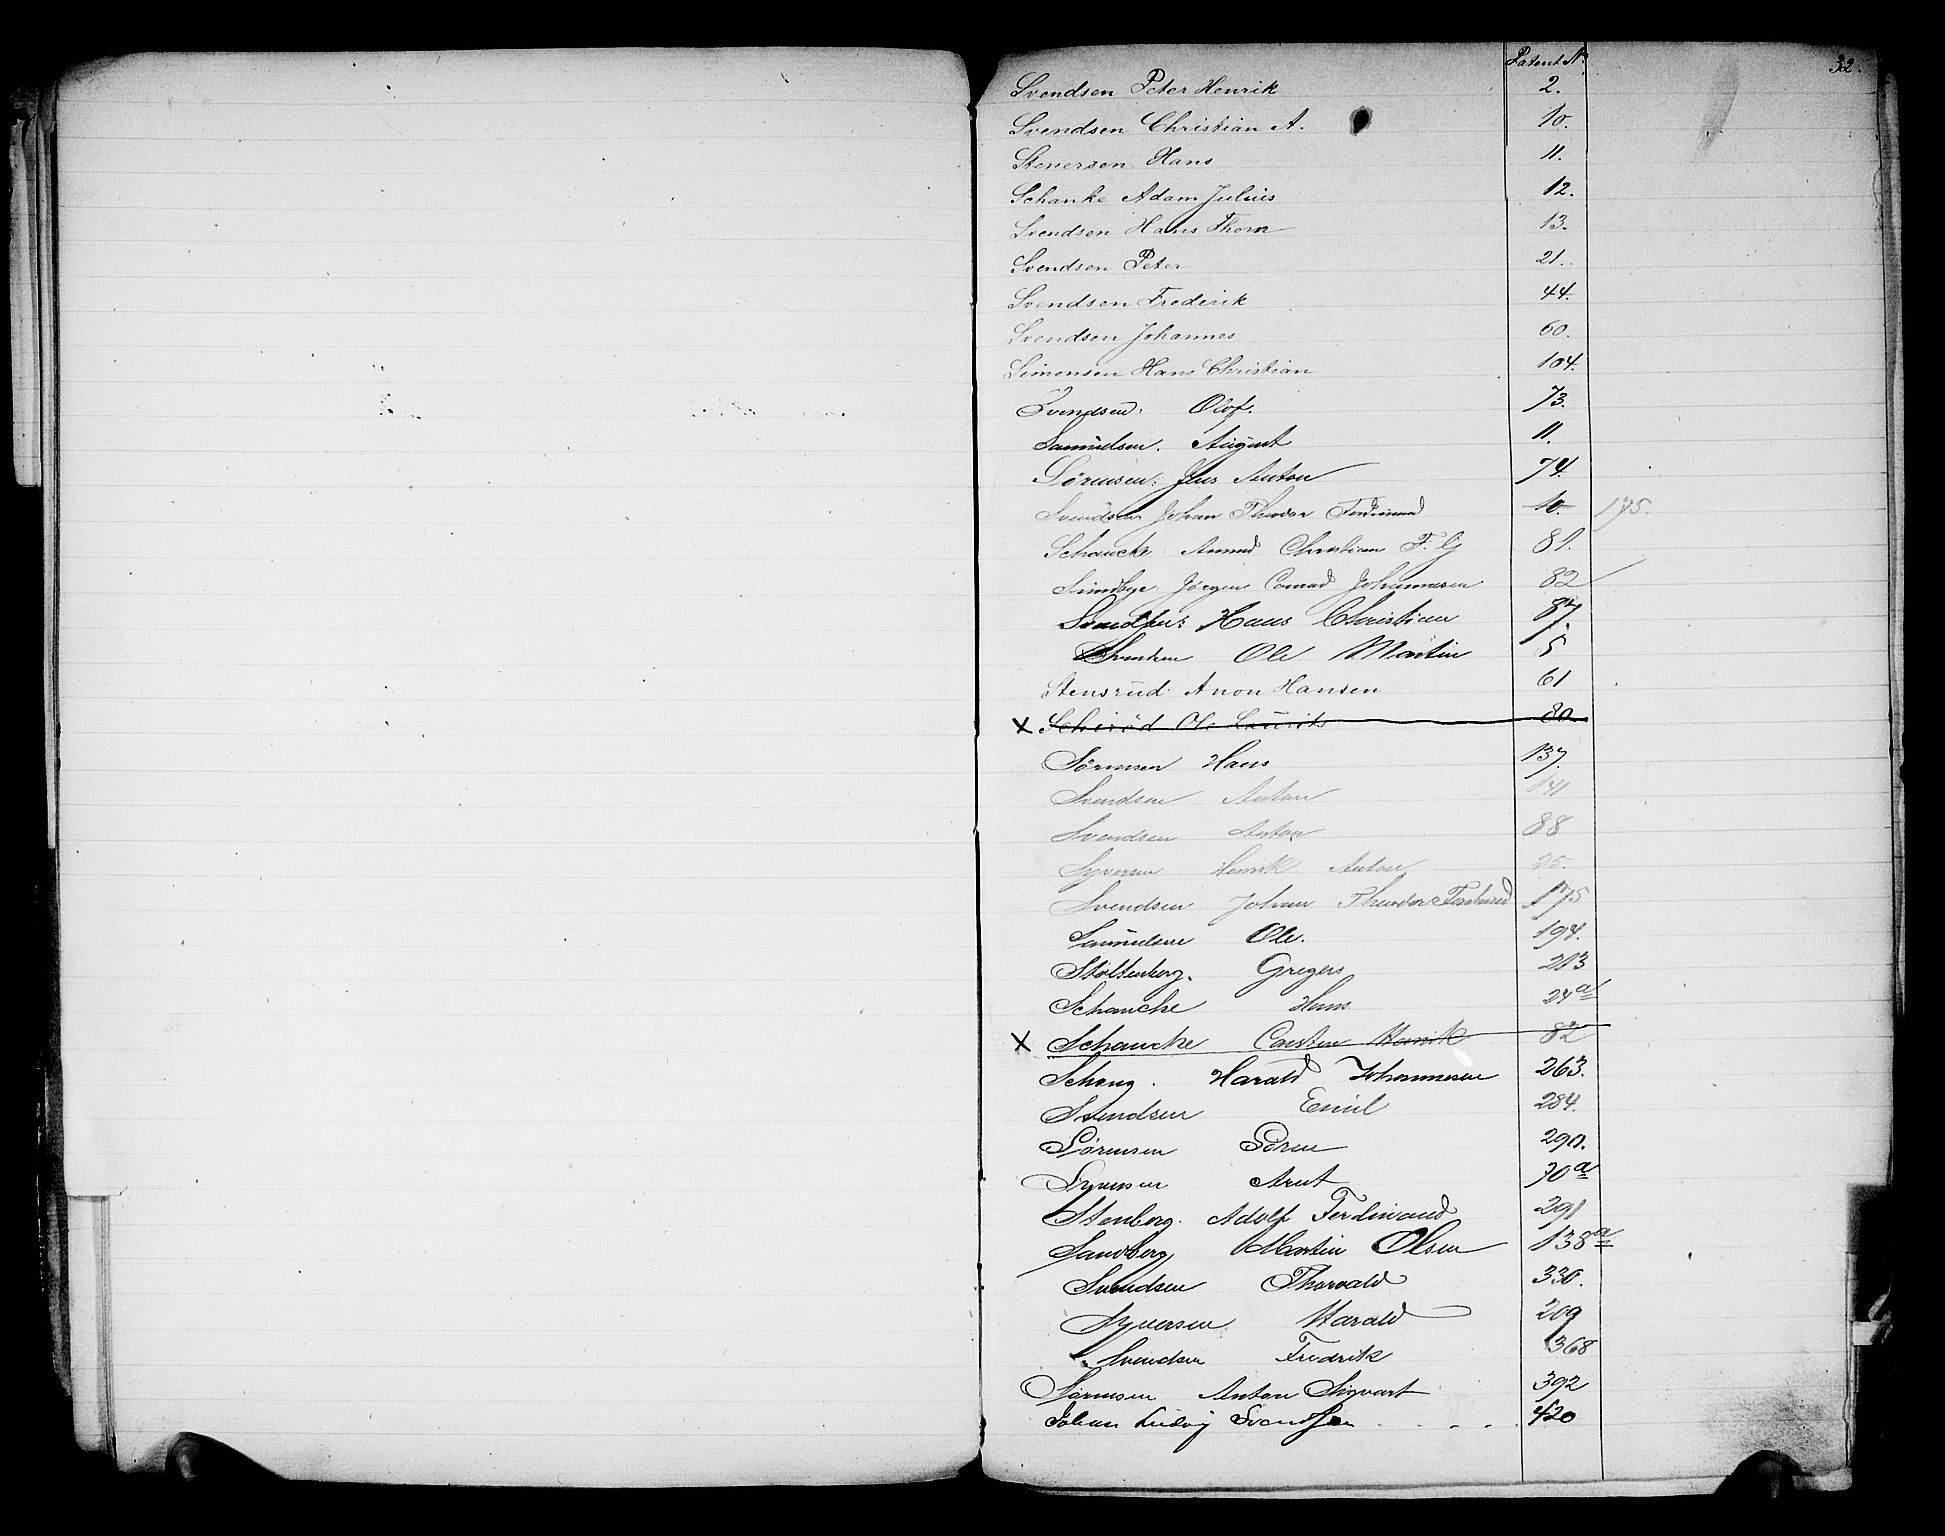 Patent Nº 32.
Svendsen Peter Henrik 2.
Svendsen Christian A. 10.
Stenersen Hans 11.
Schanke Adam Julius 12.
Svendsen Hans Thom 13.
Svendsen Peter 21.
Svendsen Frederik 44.
Svendsen Johannes 60.
Simonsen Hans Christian 104.
Svendsen: Olof. 73.
Samuelsen. August 11.
Sörensen: Jens Anton 74.
Svendsen Johan Theodor Ferdinand 10. 175.
Schancke Amund Christian F. G 81.
Sundbye Jørgen Conrad Johannesen 82
Hans Christian 87.
Ole Martin 5
Stensrud Anon Hansen 61
x Schiröd Ole Laurits 80
Sörensen Hans 137.
Svendsen Anton 141
Svendsen Anton 88
Syversen Henrik Anton 25.
Svendsen Johan Theodor Ferdinand 175
Samuelsen Ole. 194.
Stoltenberg. Gregers 213
Schancke Hans. 24a
x Schancke Carsten Henrik 82
Schøng. Harald Johannesen 263.
Svendsen Emil 284.
Sörensen Sören 290.
Syversen Arnt 70a
Stenberg. Adolf Ferdinand 291
Sandberg Martin Olsen 138a
Svendsen Thorvald 330.
Syversen Harald 209
Svendsen Fredrik 368
Sörensen Anton Sigvart 392
Johan Ludvig Svendsen . . . . 420